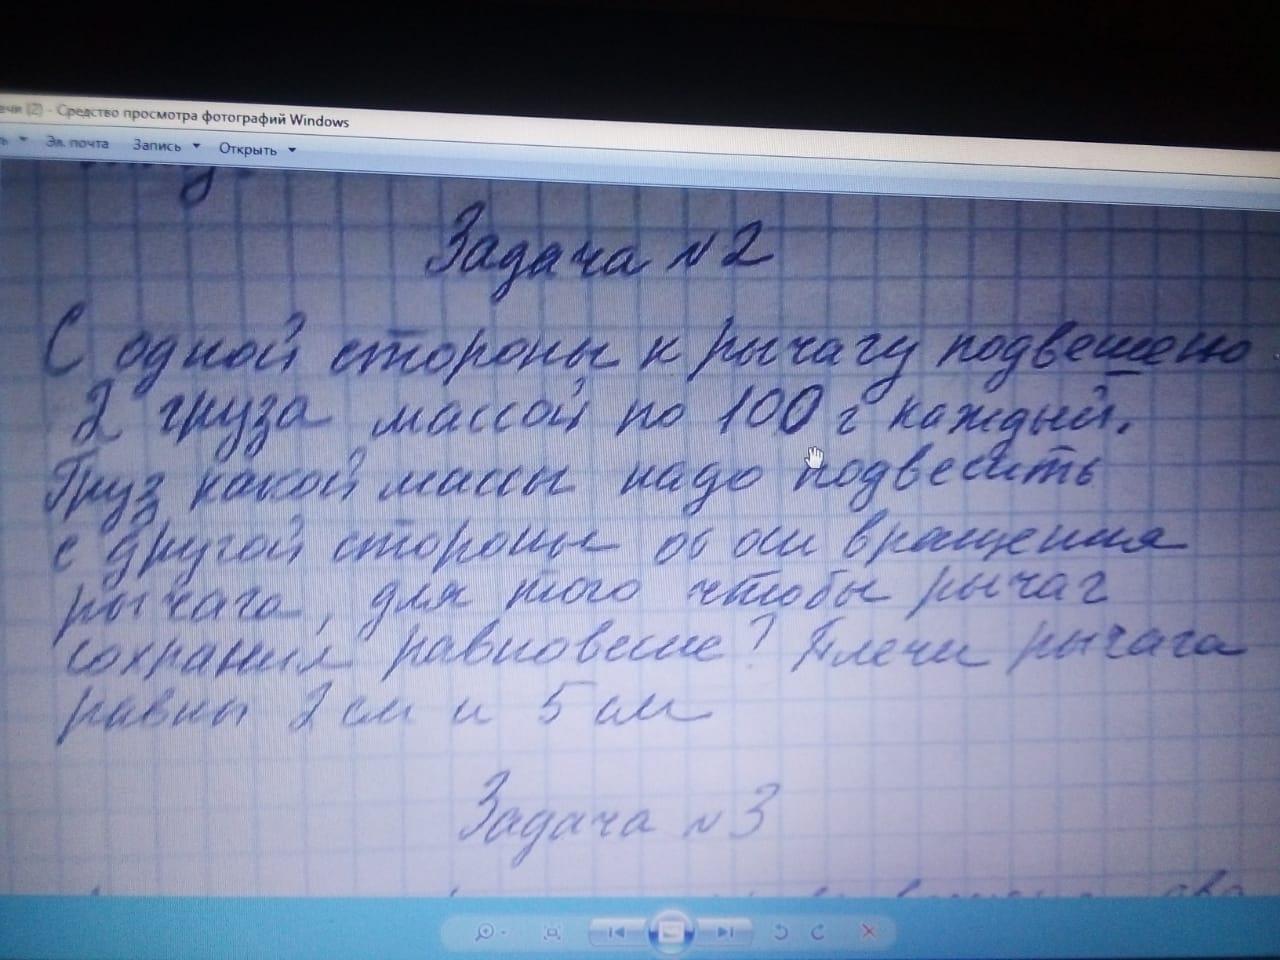 (2) - Средство просмотра фотографий Windows
Эл. почта Запись Открыть
Задача №2
С одной стороны к рычагу подвешено
2 груза массой по 100 г каждый.
Груз какой массы надо подвесить
с другой стороны от оси вращения
рычага, для того чтобы рычаг
сохранил равновесие? Плечи рычага
равны 2 см и 5 см
Задача №3